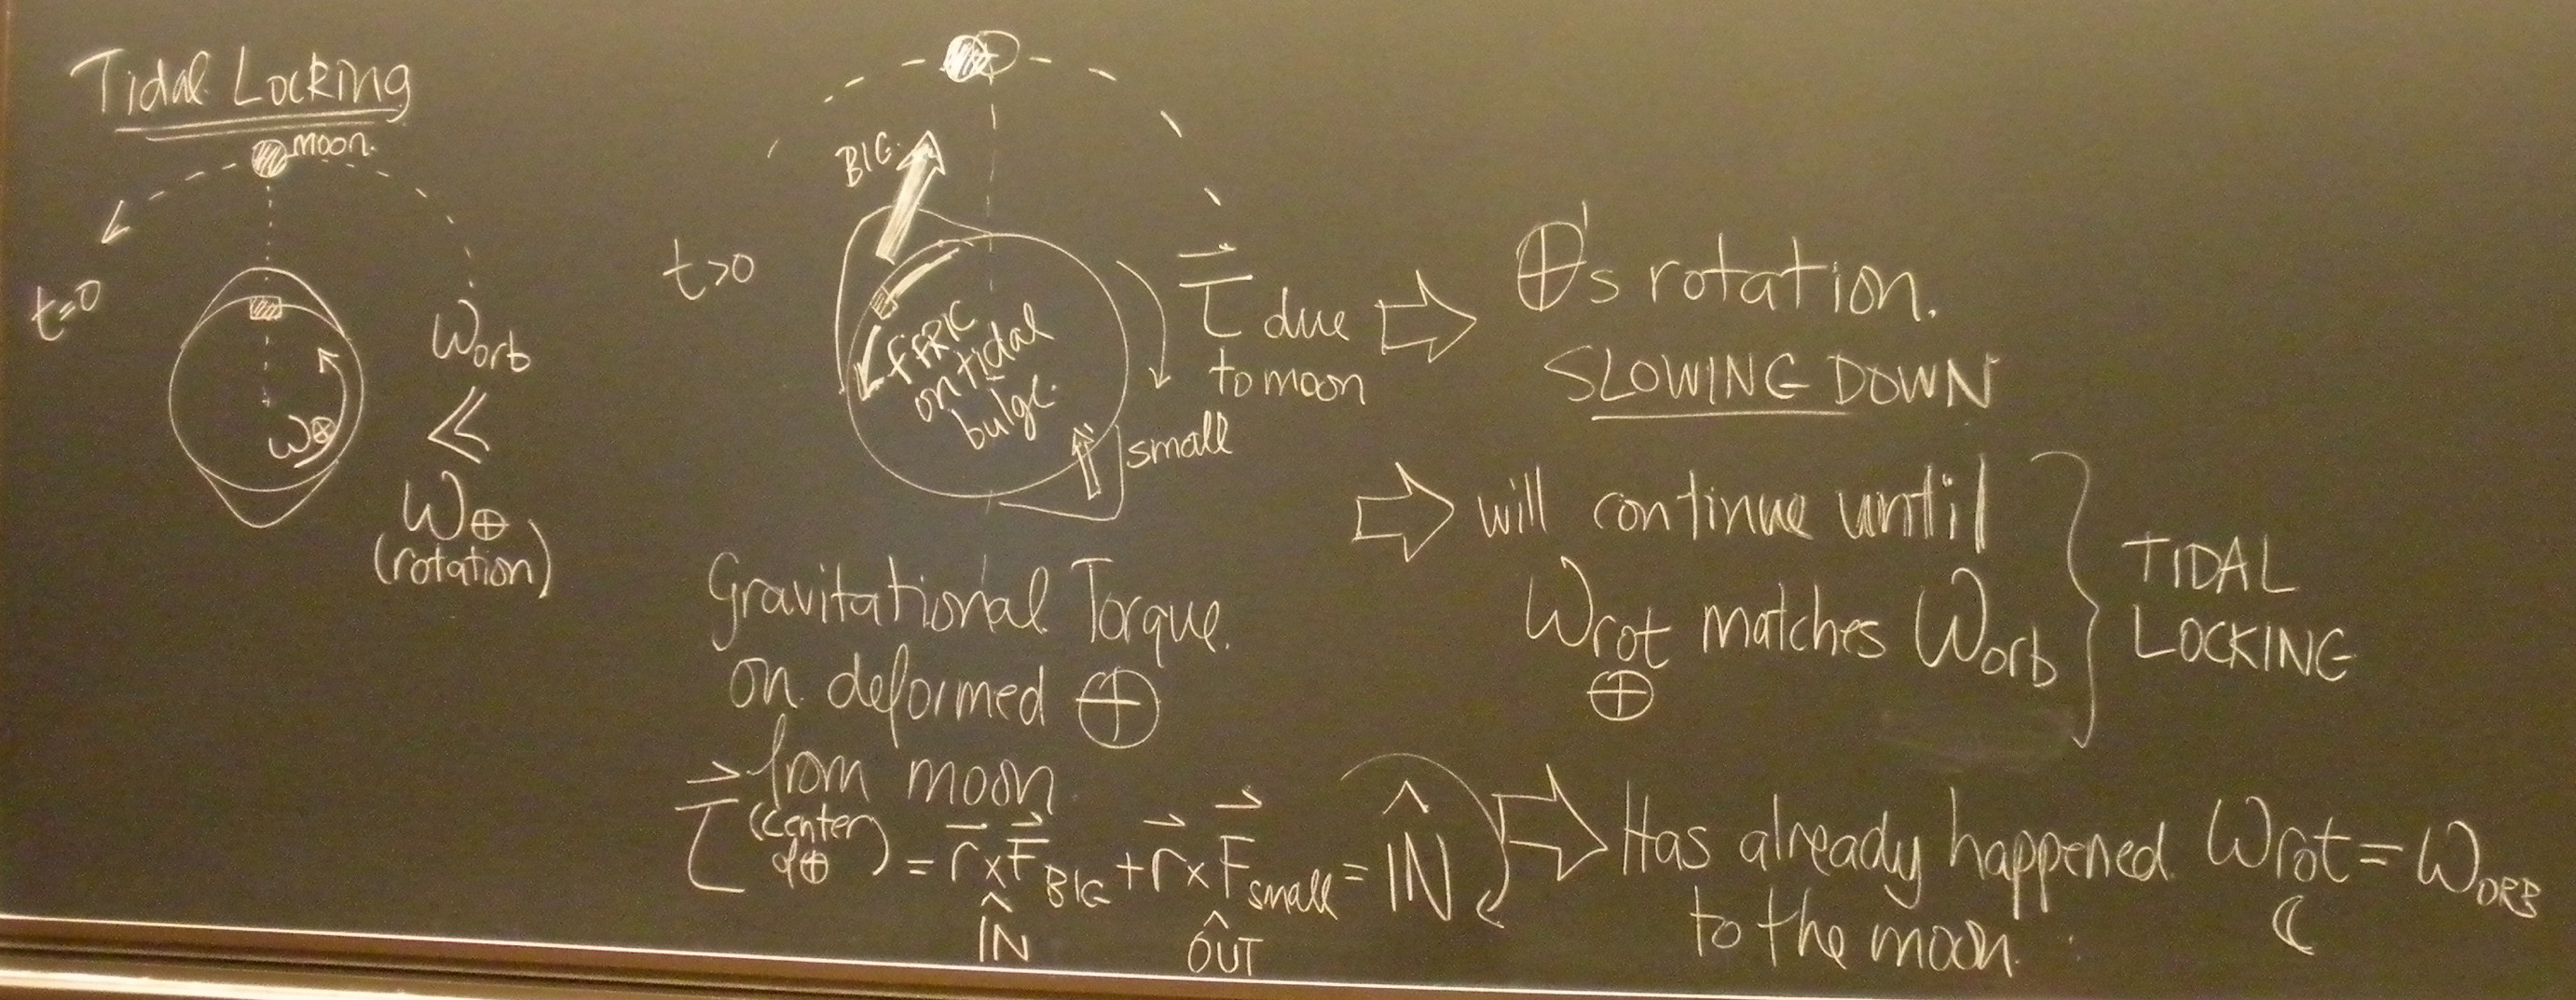 Tidal Locking
moon.
t=0
ω⊗
ωorb
≪
ω⊕
(rotation)
t>0
BIG.
fFRIC
on tidal
bulge.
small
τ⃗ due
to moon
⇨ ⊕'s rotation.
SLOWING DOWN
⇨ will continue until
ωrot matches ωorb
⊕
TIDAL
LOCKING
Gravitational Torque.
on deformed ⊕
from moon
τ⃗ (center of ⊕) = r⃗ x F⃗BIG + r⃗ x F⃗small = ÎN
ÎN
ÔUT
⇨ Has already happened. ωrot = ωORB
to the moon. ☾